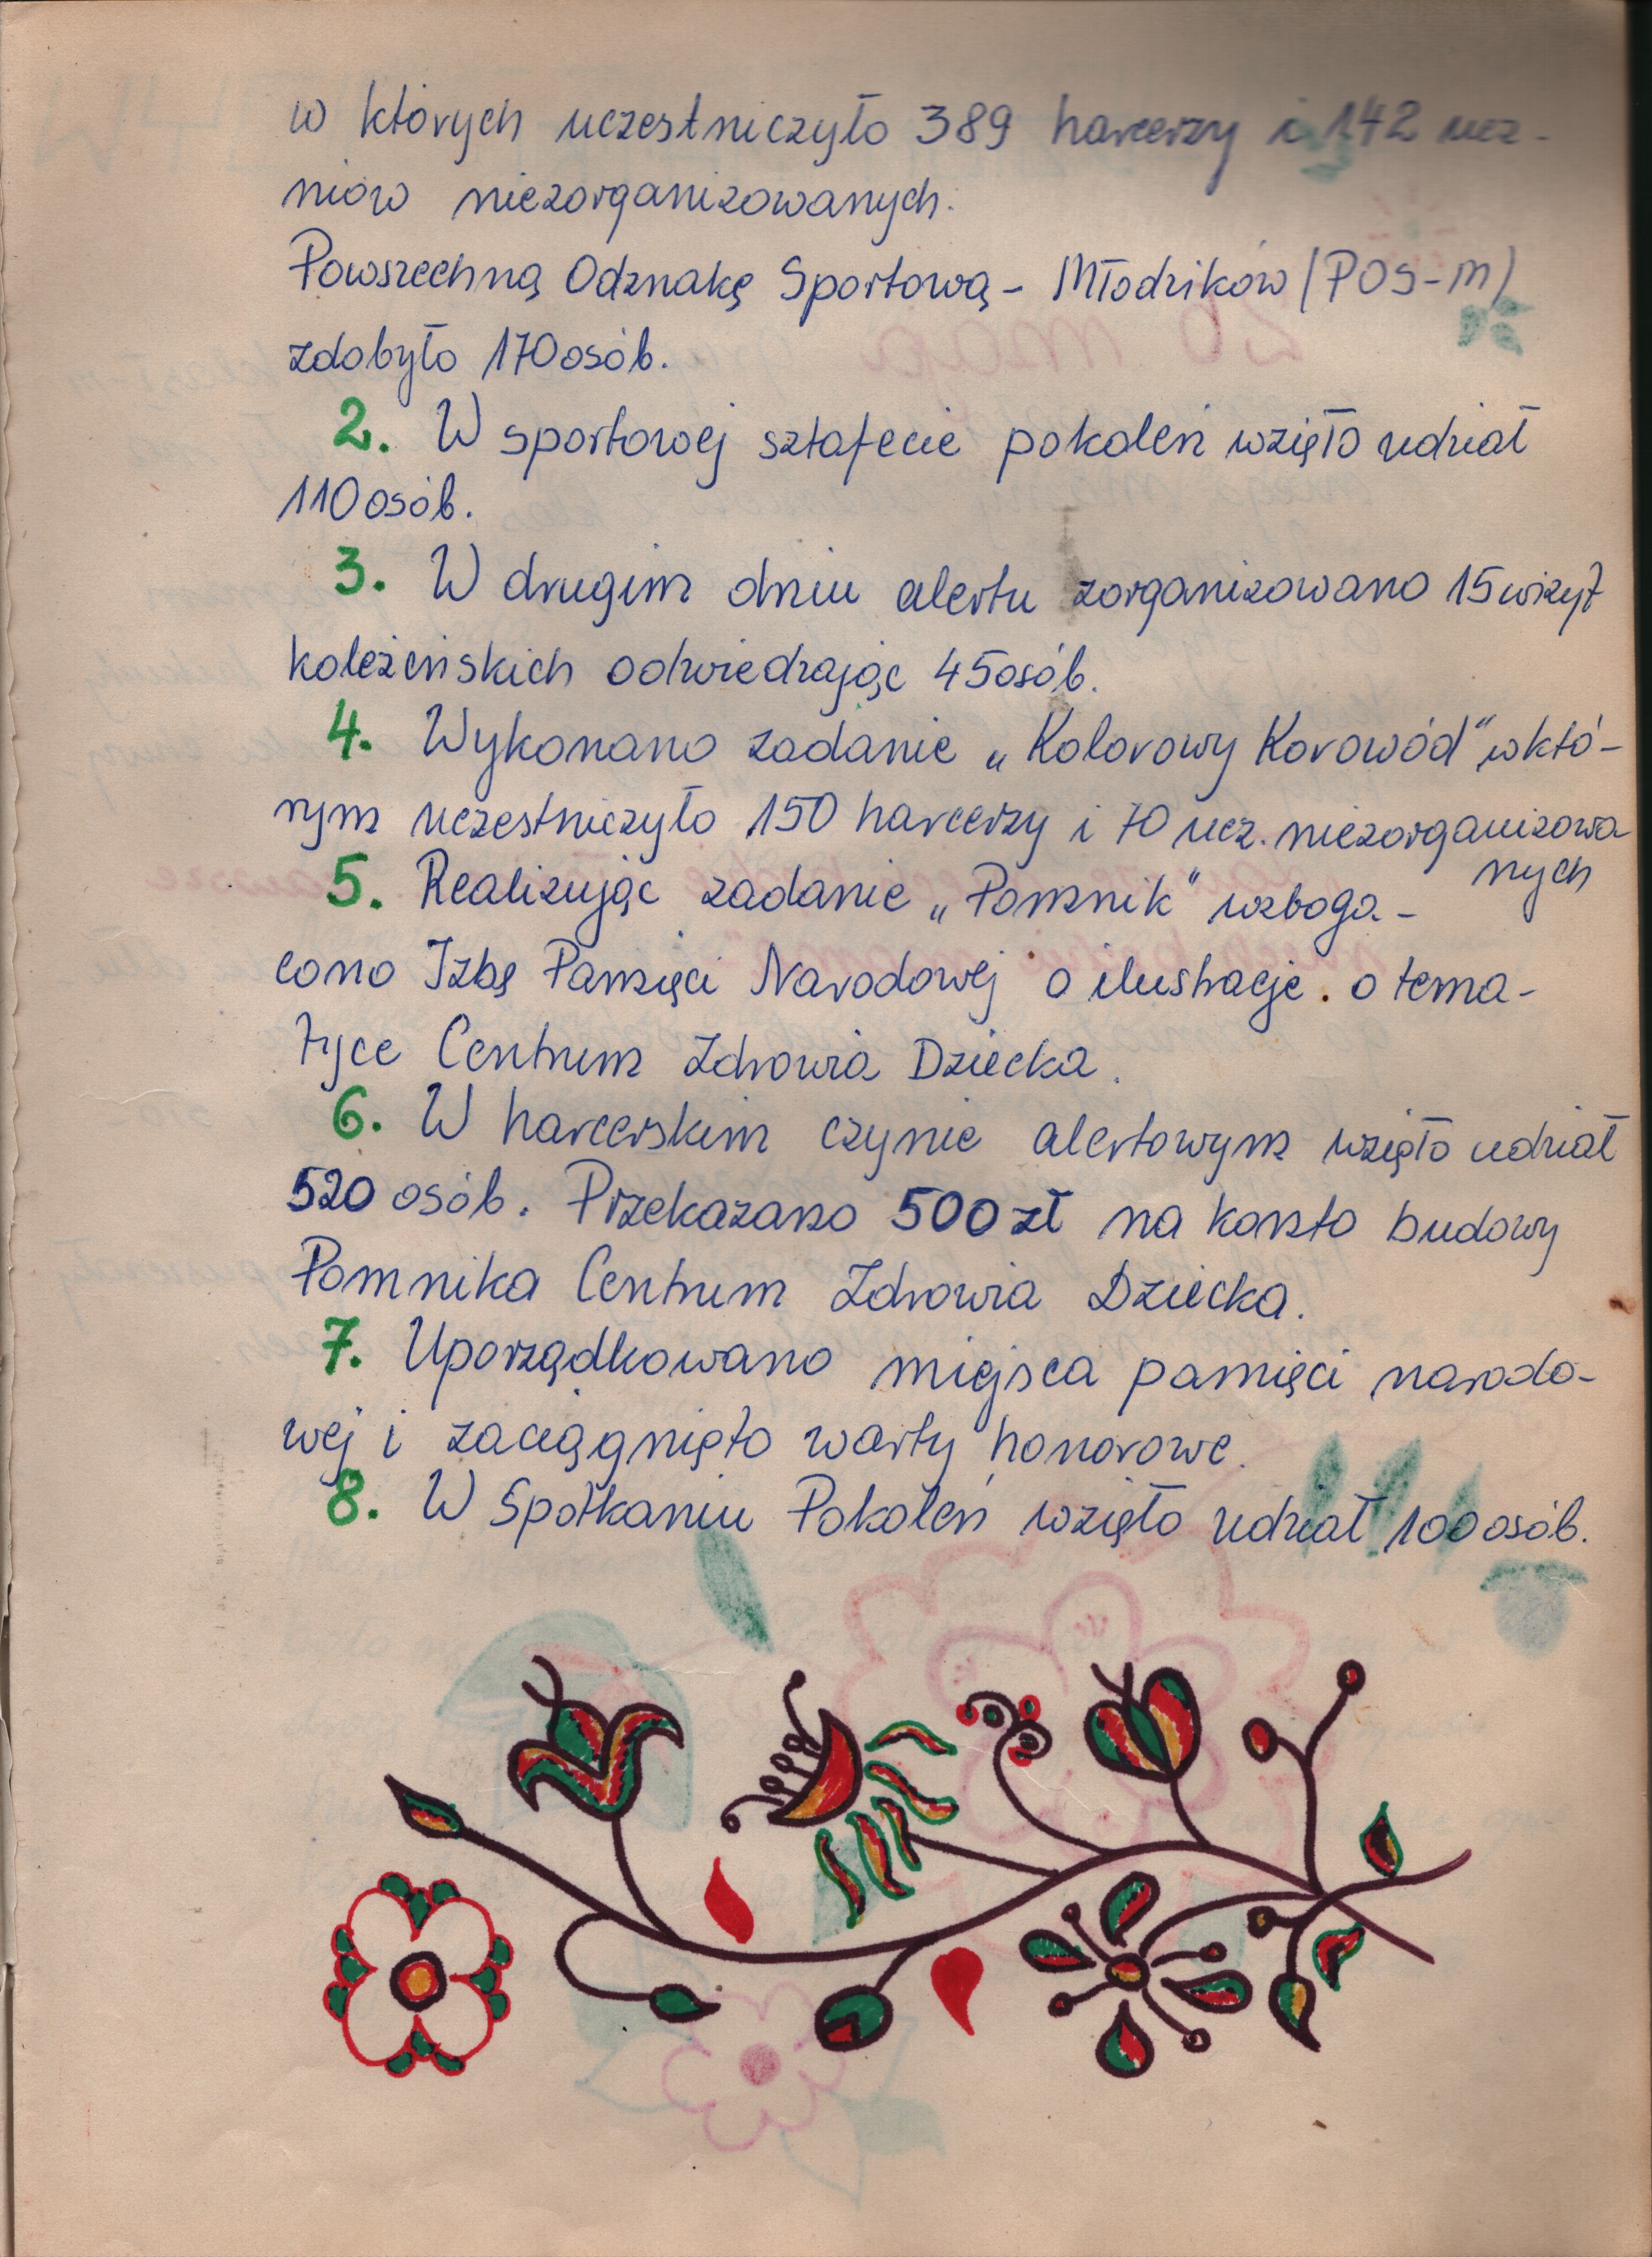 w których uczestniczyło 389 harcerzy i 142 ucz-
niów niezorganizowanych.
Powszechną Odznakę Sportową - Młodzików (POS-M)
zdobyło 170 osób.
2. W sportowej sztafecie pokoleń wzięło udział
110 osób.
3. W drugim dniu alertu zorganizowano 15 wizyt
koleżeńskich odwiedzając 45 osób.
4. Wykonano zadanie „Kolorowy Korowód” w któ-
rym uczestniczyło 150 harcerzy i 70 ucz. niezorganizowa
nych
5. Realizując zadanie „Pomnik” wzboga-
cono Izbę Pamięci Narodowej o ilustracje. o tema-
tyce Centrum Zdrowia Dziecka.
6. W harcerskim czynie alertowym wzięło udział
520 osób. Przekazano 500 zł na konto budowy
Pomnika Centrum Zdrowia Dziecka.
7. Uporządkowano miejsca pamięci narodo-
wej i zaciągnięto warty honorowe.
8. W Spotkaniu Pokoleń wzięło udział 100 osób.